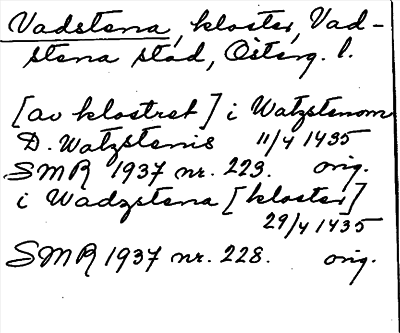 Vadstena, kloster, Vad-
stena stad, Österg. l.
[av klostret] i Watzstenom
D. Watzstenis 11/4 1435
SMR 1937 nr. 223. orig.
i Wadzstena [kloster]
29/4 1435
SMR 1937 nr. 228. orig.